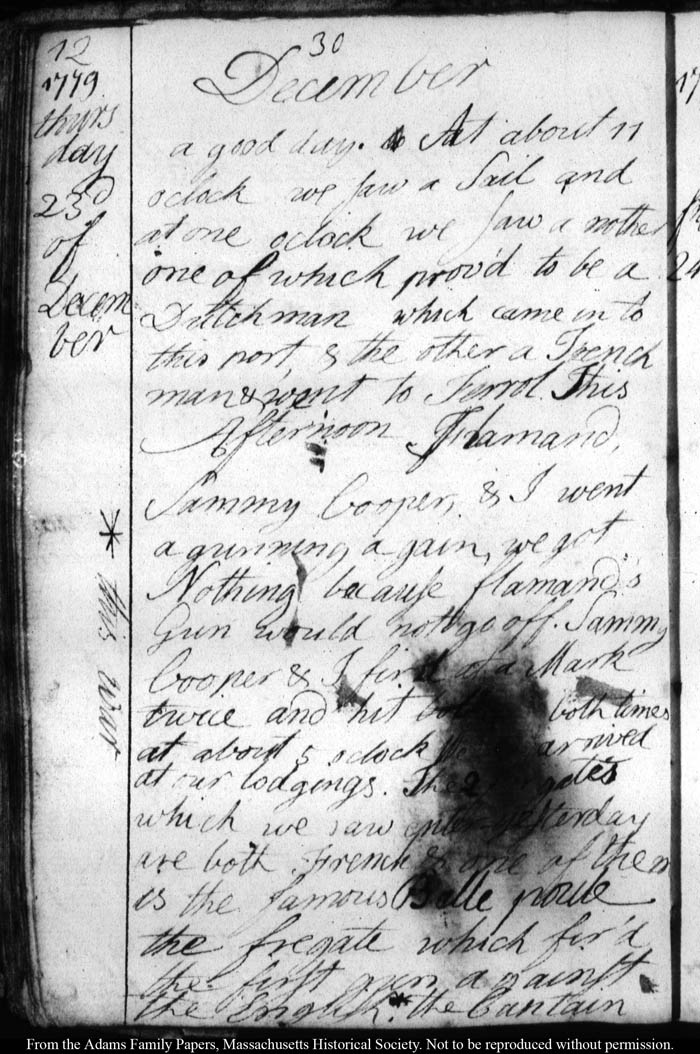 12
1779
thurs
day
23d
of
Decem
ber
* this war
30
December
a good day. At about 11
oclock we saw a Sail and
at one oclock we saw a nother
one of which prov'd to be a
Dutchman which came in to
this port, & the other a French
man & went to Ferrol. This
Afternoon Flamand,
Sammy Cooper, & I went
a gunning again, we got
Nothing because flamand's
Gun would not go off. Sammy
Cooper & I fir'd at a Mark
twice and hit both times
at about 5 oclock we arrived
at our lodgings. The
which we saw enter yesterday
are both French & one of them
is the famous Belle poule
the fregate which fir'd
the first gun against
the English.* the Captain
17
24
From the Adams Family Papers, Massachusetts Historical Society. Not to be reproduced without permission.